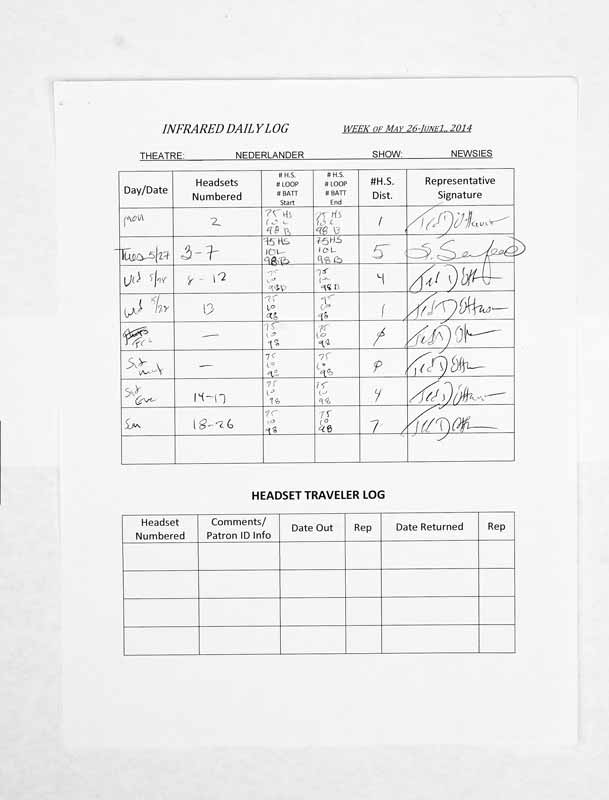 INFRARED DAILY LOG WEEK OF MAY 26-JUNE1., 2014
THEATRE: NEDERLANDER SHOW: NEWSIES
Day/Date Headsets Numbered # H.S. # LOOP # BATT Start # H.S. # LOOP # BATT End #H.S. Dist. Representative Signature
Mon 2 75 HS 10 L 98 B 75 HS 10 L 98 B 1
Tues 5/27 3-7 75 HS 10L 98B 75HS 10L 98B 5
Wed 5/28 8-12 75 10 98B 75 10 98B 4
Wed 5/28 13 75 10 98 75 10 98 1
Fri — 75 10 98 75 10 98 0
Sat mat — 75 10 98 75 10 98 0
Sat Eve 14-17 75 10 98 75 10 98 4
Sun 18-26 75 10 98 75 10 98 7
HEADSET TRAVELER LOG
Headset Numbered Comments/ Patron ID Info Date Out Rep Date Returned Rep